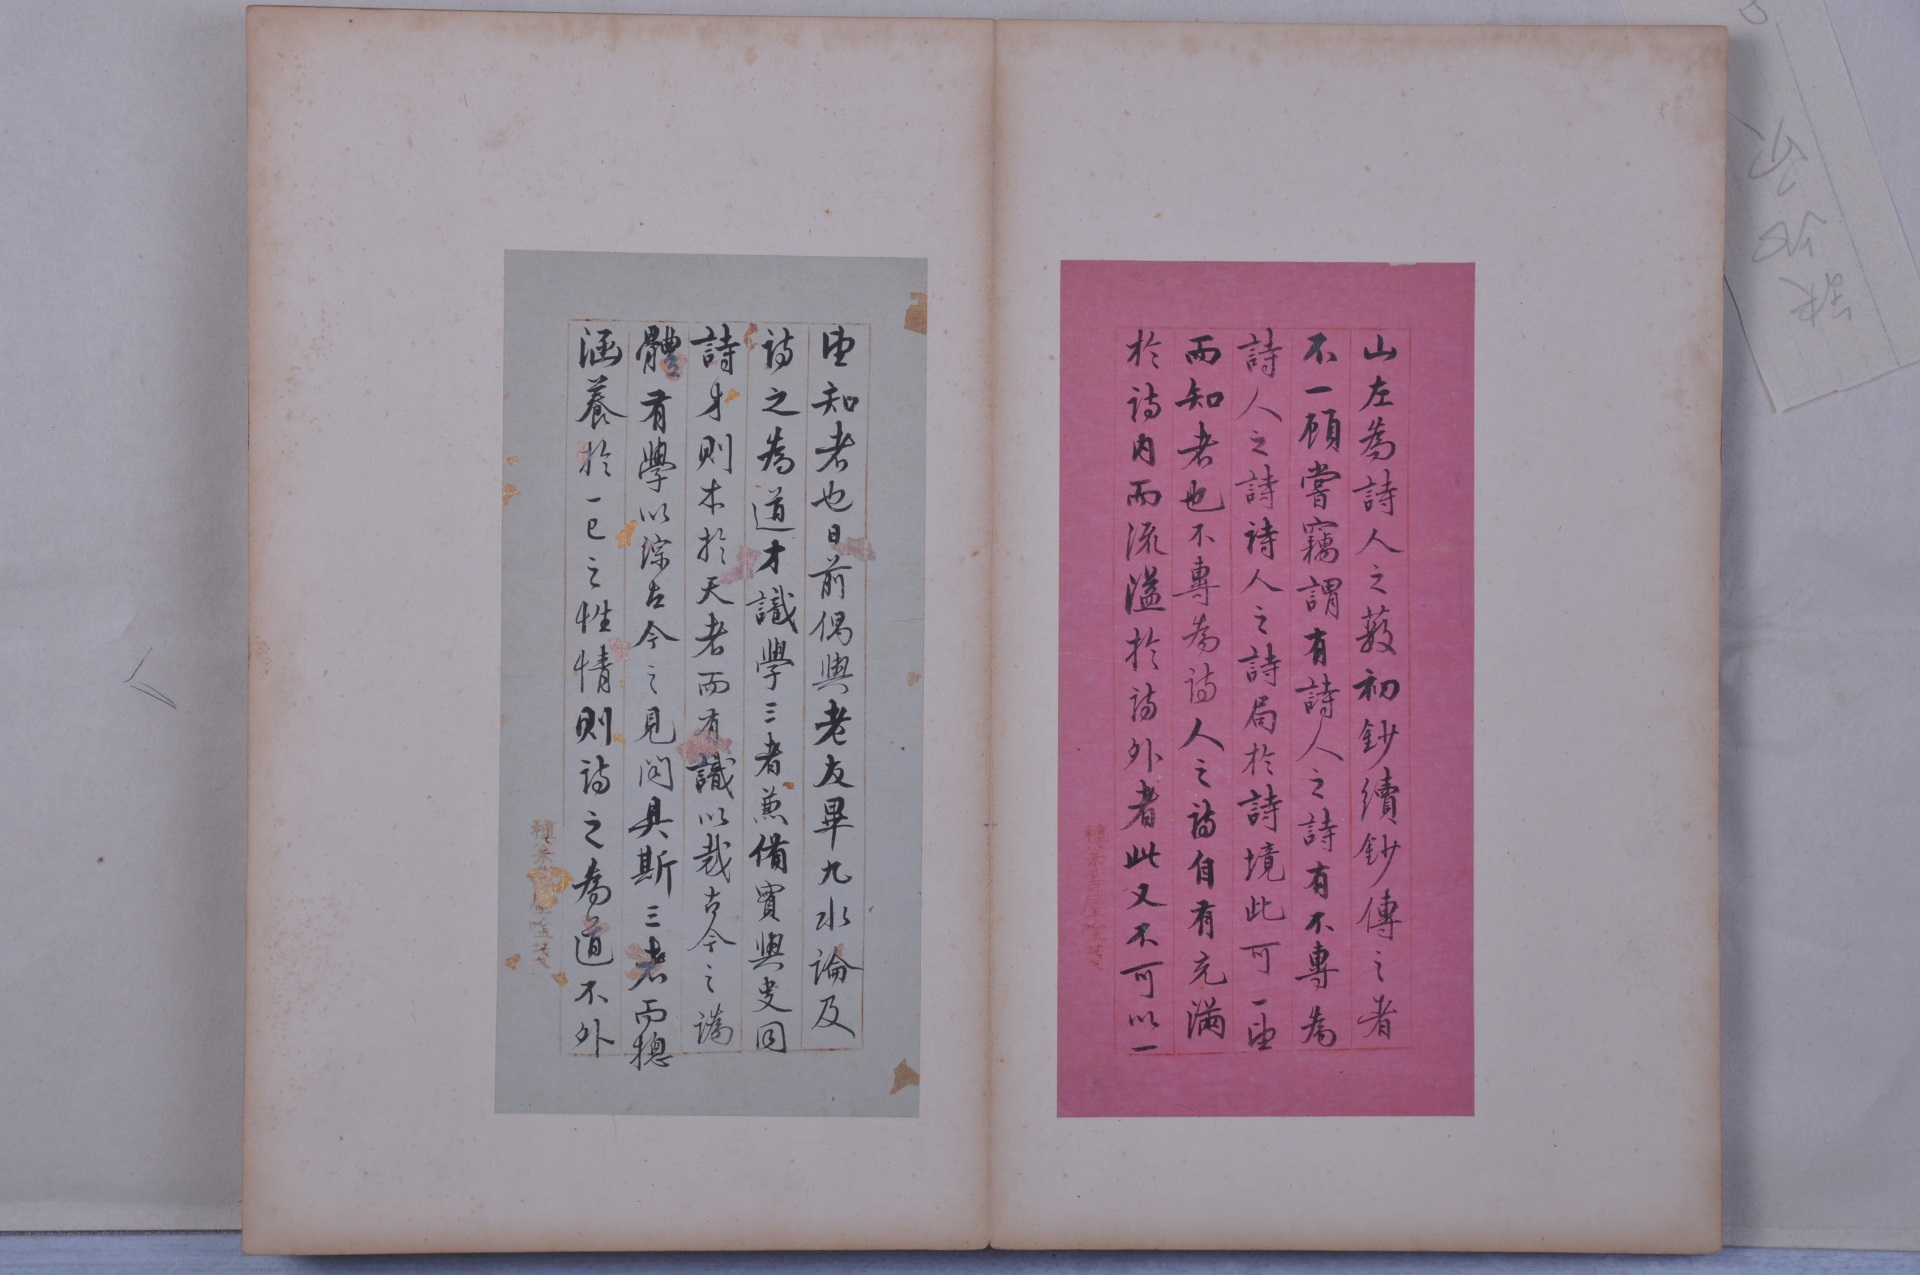 山左為詩人之藪初鈔續鈔傳之者
不一顧嘗竊謂有詩人之詩有不專為
詩人之詩詩人之詩局於詩境此可一望
而知者也不專為詩人之詩自有充滿
於詩内而流溢於詩外者此又不可以一
望知者也日前偶與老友畢九水論及
詩之為道才識學三者兼備實與史同
詩才則本於天者而有識以裁古今之
體有學以綜古今之見聞具斯三者而摠
涵養於一已之性情則詩之為道不外